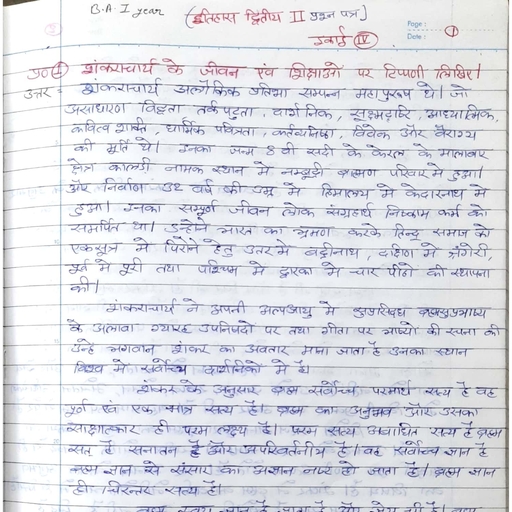 B.A-I year (इतिहास द्वितीय II प्रश्न पत्र)
इकाई IV
Page: 1
Date:
प्र० ① शंकराचार्य के जीवन एवं शिक्षाओं पर टिप्पणी लिखिए।
उत्तर = शंकराचार्य अलौकिक प्रतिभा सम्पन्न महापुरूष थे। जो
असाधारण विद्वता तर्कपटुता, दार्शनिक, सूक्ष्मदृष्टि, आध्यात्मिक,
कवित्व शक्ति, धार्मिक पवित्रता, कर्तव्यनिष्ठा, विवेक और वैराग्य
की मूर्ति थे। इनका जन्म 8 वी सदी के केरल के मालाबार
क्षेत्र कालडी नामक स्थान मे नम्बूद्री ब्राह्मण परिवार मे हुआ।
और निर्वाण 32 वर्ष की उम्र मे हिमालय मे केदारनाथ मे
हुआ। इनका सम्पूर्ण जीवन लोक संग्रहार्थ निष्काम कर्म को
समर्पित था। उन्होने भारत का भ्रमण करके हिन्दू समाज को
एकसूत्र मे पिरोने हेतु उत्तर मे बद्रीनाथ, दक्षिण मे श्रंगेरी,
पूर्व मे पूरी तथा पश्चिम मे द्वारका मे चार पीठो की स्थापना
की।
शंकराचार्य ने अपनी अल्पआयु मे ब्रह्मसूत्रभाष्य
के अलावा ग्यारह उपनिषदो पर तथा गीता पर भाष्यो की रचना की
उन्हे भगवान शंकर का अवतार माना जाता है उनका स्थान
विश्व मे सर्वोच्च दार्शनिको मे है।
शंकर के अनुसार ब्रह्म सर्वोच्च परमार्थ सत्य है वह
पूर्ण एवं एक मात्र सत्य है। ब्रह्म का अनुभव और उसका
साक्षात्कार ही परम लक्ष्य है। परम सत्य अबाधित सत्य है ब्रह्म
सत् है सनातन है और अपरिवर्तनीय है। वह सर्वोच्च ज्ञान है
ब्रह्म ज्ञान से संसार का अज्ञान नष्ट हो जाता है। ब्रह्म ज्ञान
ही चिरन्तर सत्य है।